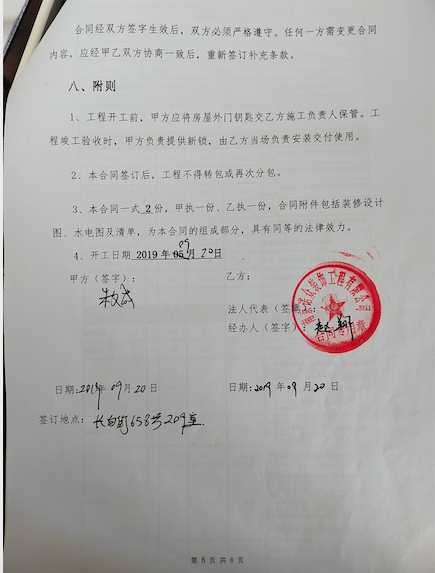 合同经双方签字生效后，双方必须严格遵守。任何一方需变更合同
内容，应经甲乙双方协商一致后，重新签订补充条款。
八、附则
1、工程开工前，甲方应将房屋外门钥匙交乙方施工负责人保管。工
程竣工验收时，甲方负责提供新锁，由乙方当场负责安装交付使用。
2、本合同签订后，工程不得转包或再次分包。
3、本合同一式 2份，甲执一份、乙执一份，合同附件包括装修设计
图、水电图及清单，为本合同的组成部分，具有同等的法律效力。
09
4、开工日期 2019 年 05 月 20日
甲方（签字）：
乙方：
法人代表（签
经办人（签字）
装饰工程有限公
合同专用章
日期：2019年 09月 20 日
日期：2019 年 09 月 20 日
签订地点：长白路658号209室.
第 6 页 共 6 页